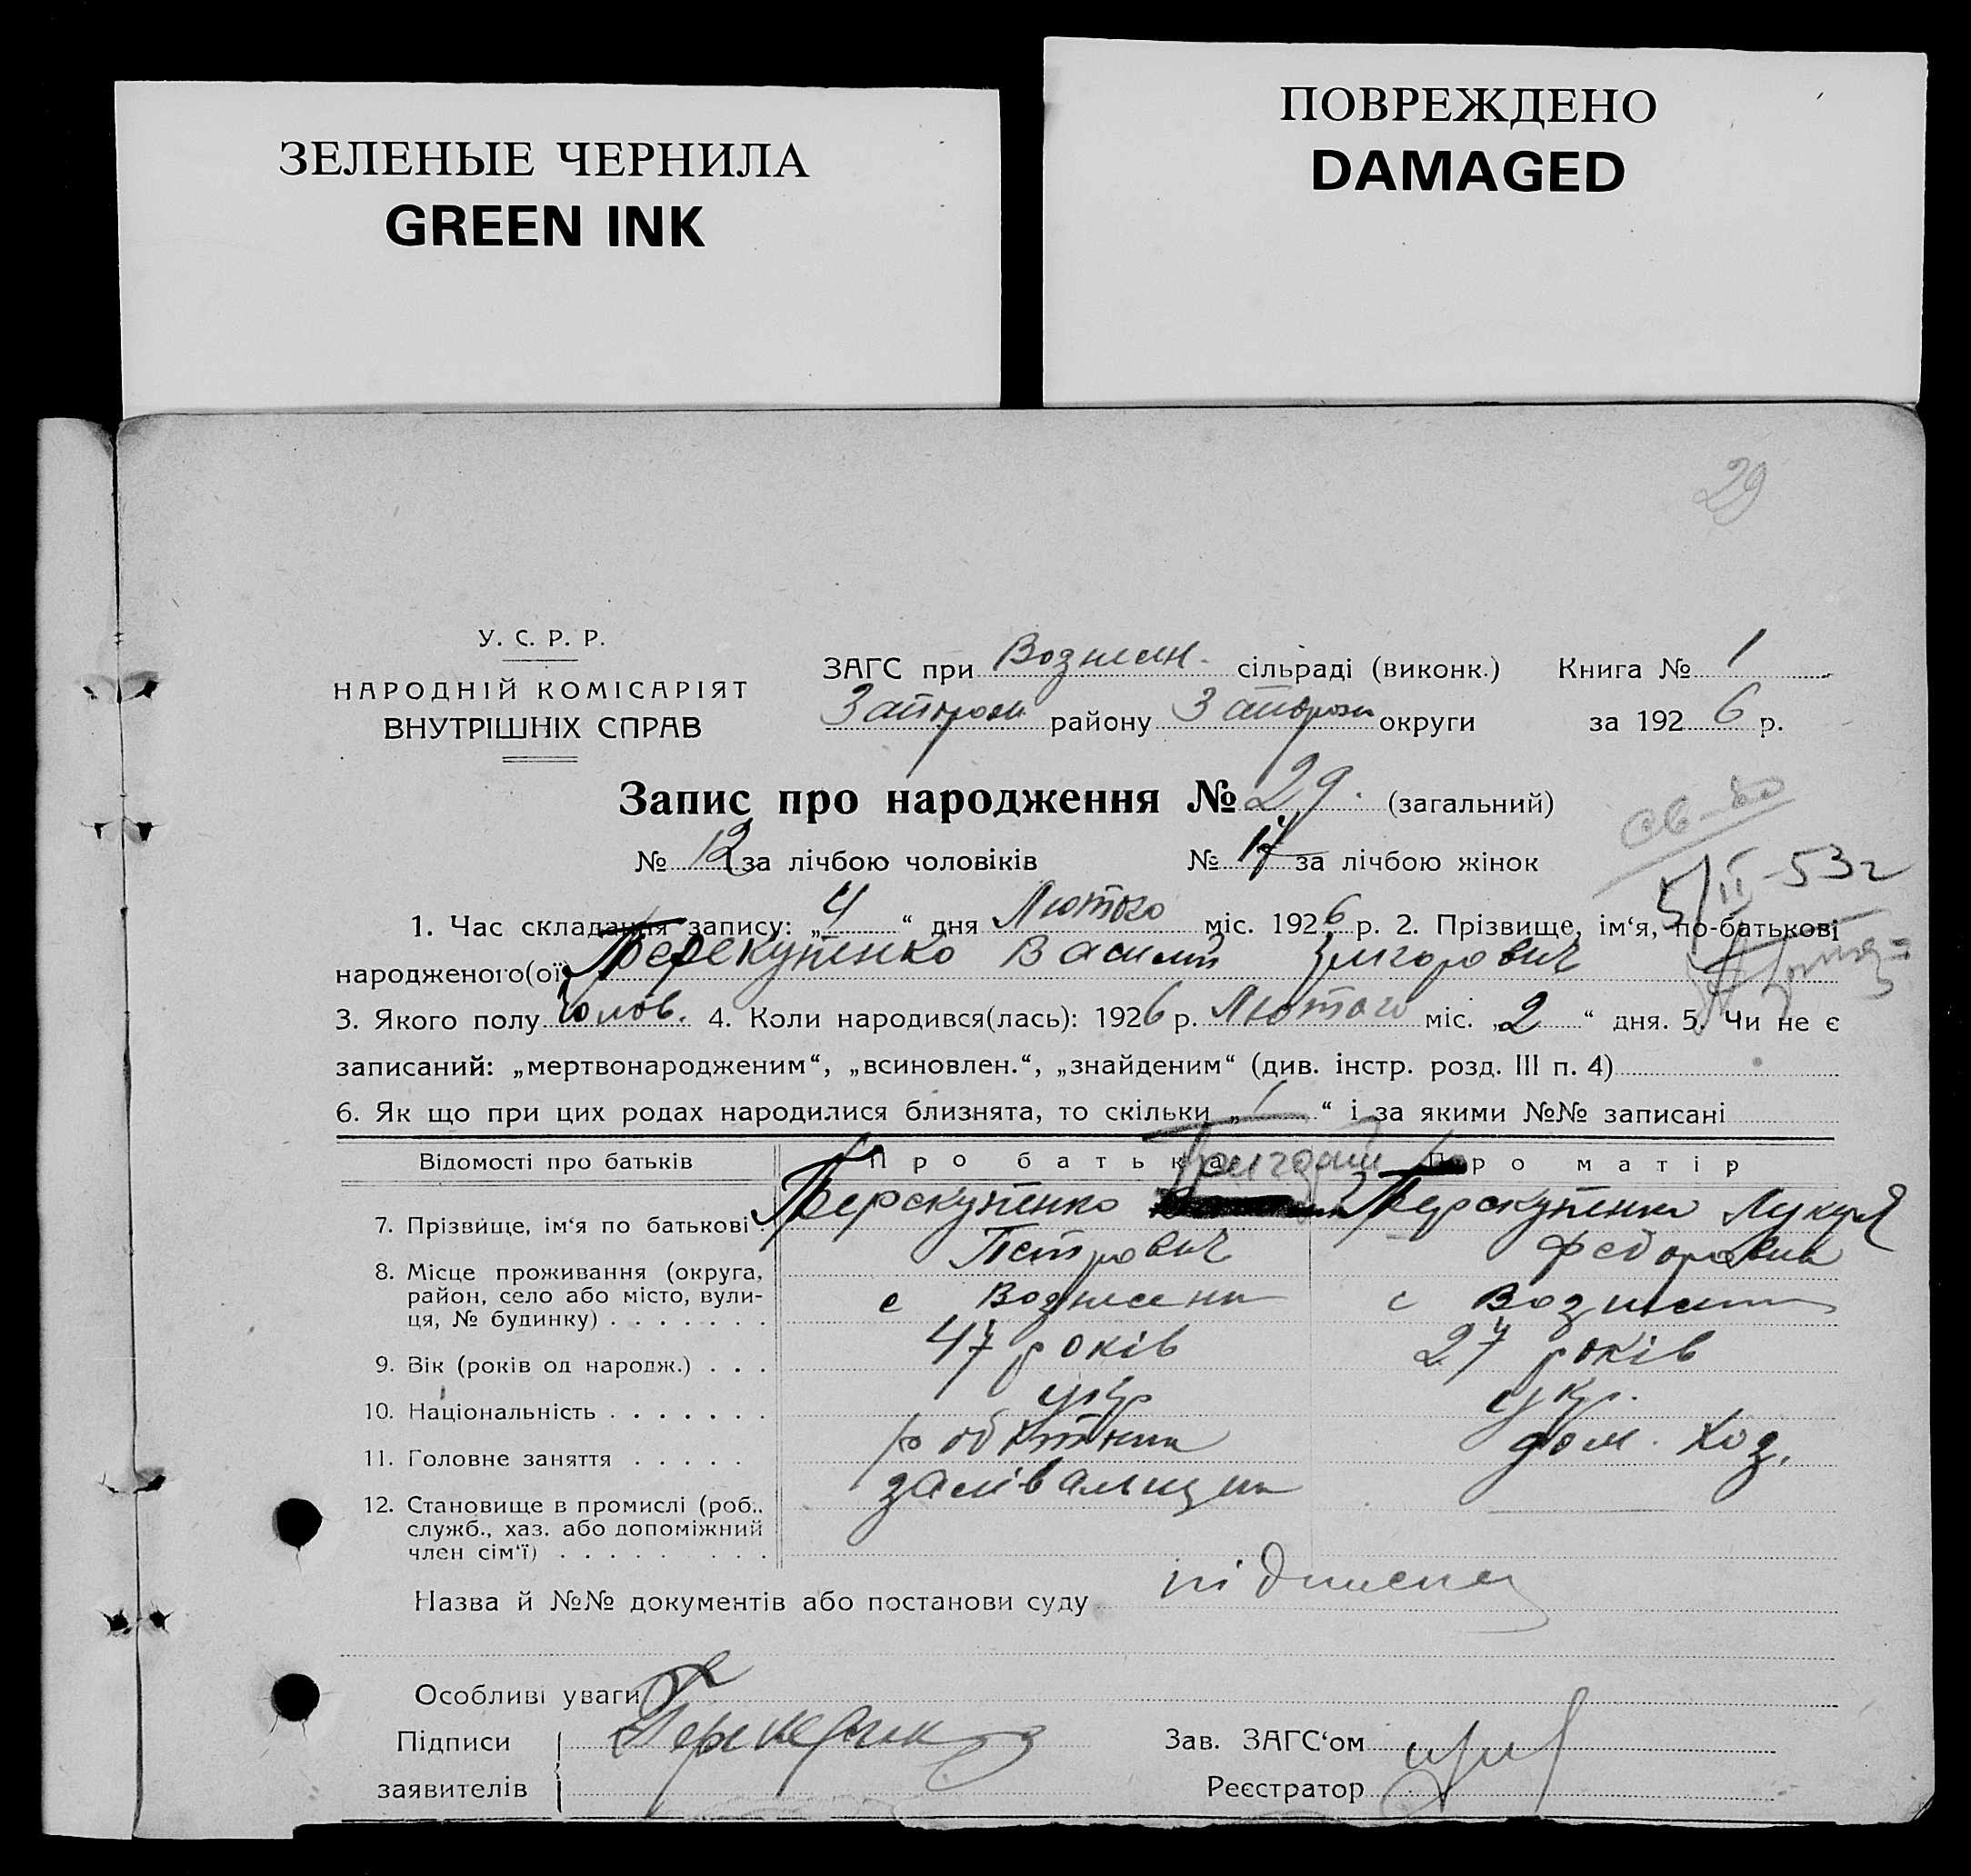 ЗЕЛЕНЫЕ ЧЕРНИЛА
GREEN INK
ПОВРЕЖДЕНО
DAMAGED
29
У. С. Р. Р.
НАРОДНІЙ КОМІСАРІЯТ
ВНУТРІШНІХ СПРАВ
ЗАГС при Вознесен. сільраді (виконк.) Книга № 1
району округи за 1926 р.
Запис про народження № 29. (загальний)
№ 12 за лічбою чоловіків № 17 за лічбою жінок
5/II-53г
1. Час складання запису: „4“ дня Лютого міс. 1926 р. 2. Прізвище, ім‘я, по-батькові
народженого(ої) Перекупенко Василий Григорович
3. Якого полу чолов. 4. Коли народився(лась): 1926 р. Лютого міс. „2“ дня. 5. Чи не є
записаний: „мертвонародженим“, „всиновлен.“, „знайденим“ (див. інстр. розд. III п. 4)
6. Як що при цих родах народилися близнята, то скільки „ “ і за якими №№ записані
Відомості про батьків Про батька Про матір
Григорий
7. Прізвище, ім‘я по батькові Перекупенко Перекупенко Лукеря
Петрович Федоровна
8. Місце проживання (округа, район, село або місто, вулиця, № будинку) с Вознесенка с Вознесенка
9. Вік (років од народж.) 47 років 27 років
10. Національність укр укр.
11. Головне заняття робітник дом. хоз.
12. Становище в промислі (роб., служб., хаз. або допоміжний член сім‘ї)
Назва й №№ документів або постанови суду підписка
Особливі уваги
Підписи
заявителів
Зав. ЗАГС‘ом
Реєстратор